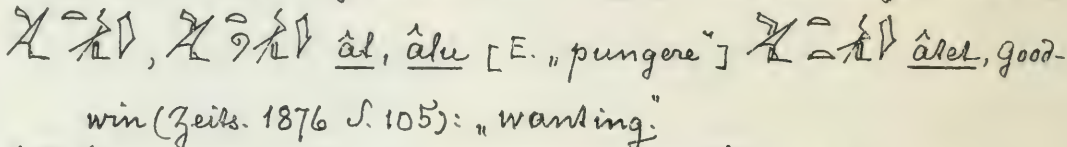 , ât, âtu [E. „pungere“] âtet, Good-
win (Zeits. 1876 S. 105): „wanting.“